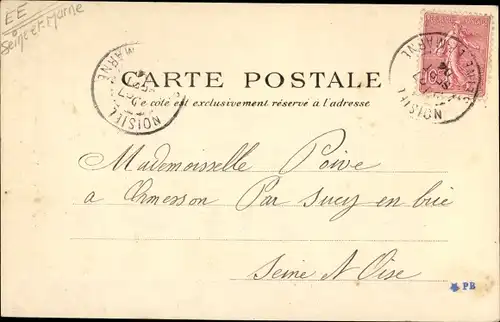 EE
Seine et Marne
CARTE POSTALE
Ce côté est exclusivement réservé à l'adresse
NOISIEL
MARNE
NOISIEL
MARNE
Mademoiselle Poive
a Ormesson Par Sucy en brie
Seine N Oise
PB